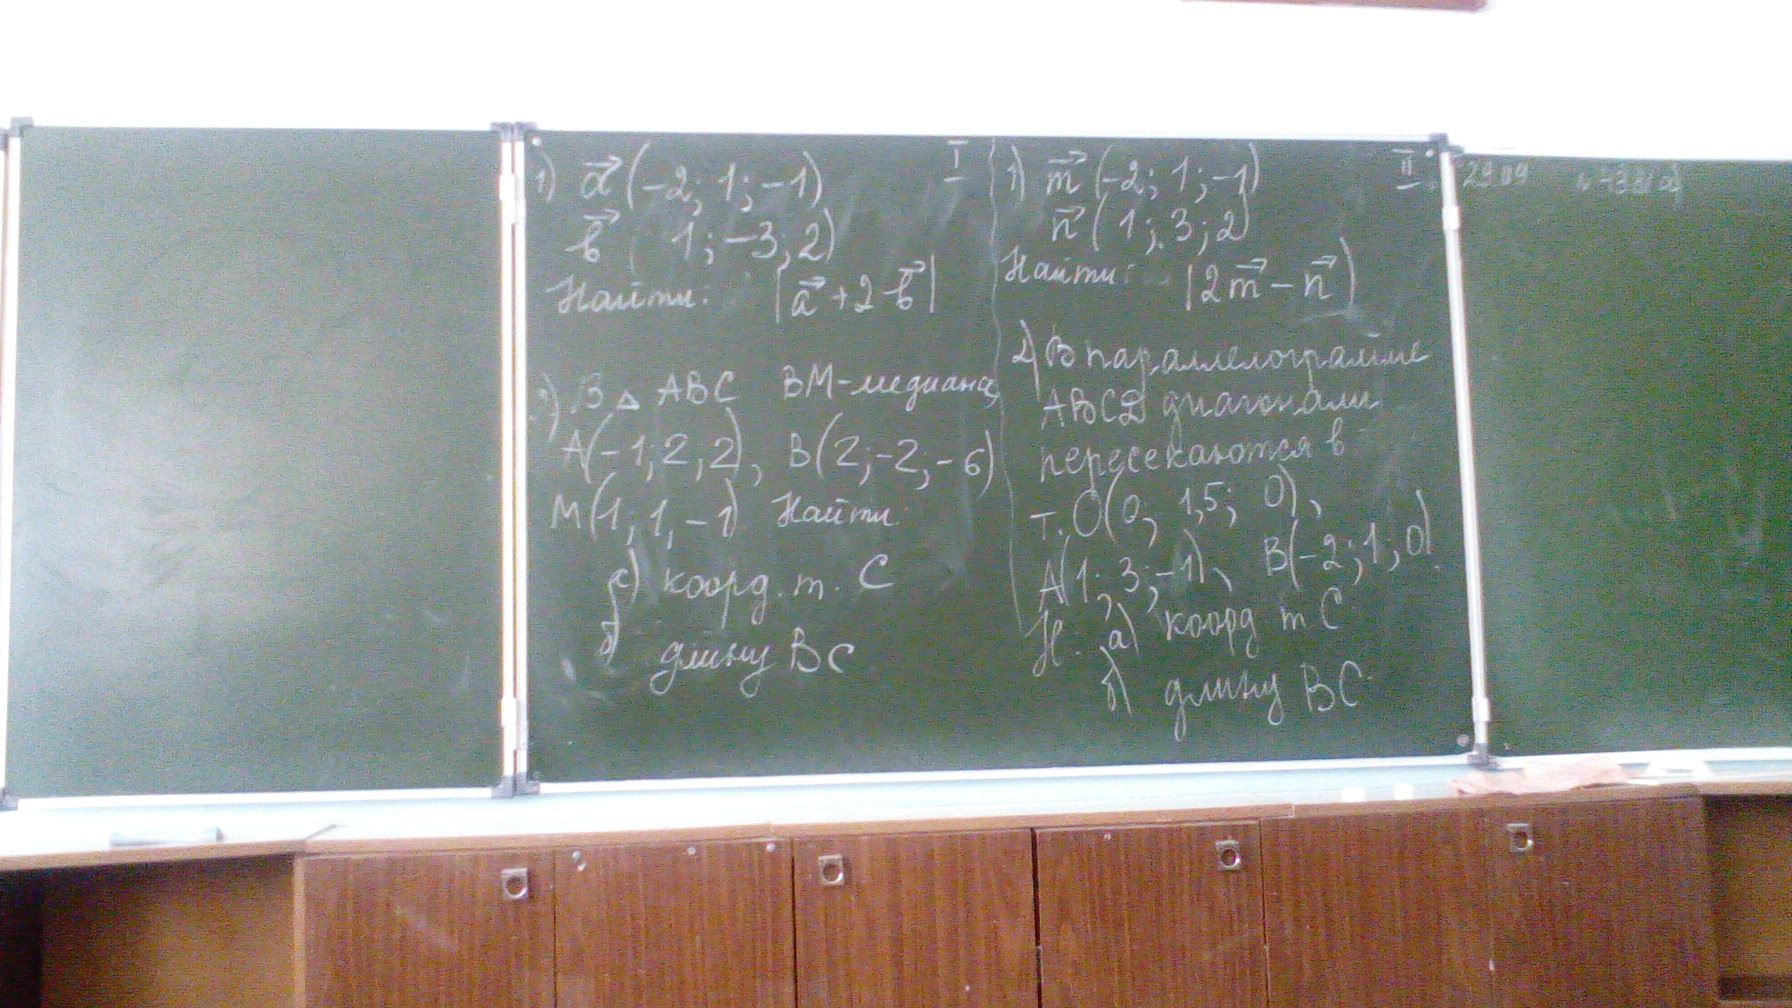 I
1) a⃗ (-2; 1; -1)
b⃗ ( 1; -3; 2)
Найти: |a⃗ + 2b⃗|
2) В △ ABC BM-медиана,
A(-1, 2, 2), B(2; -2; -6)
M(1; 1, -1) Найти
а) коорд. т. C
б) длину BC
II
1) m⃗ (-2; 1; -1)
n⃗ ( 1; 3; 2)
Найти: |2m⃗ - n⃗|
2) В параллелограмме
ABCD диагонали
пересекаются в
т. O(0; 1,5; 0),
A(1; 3; -1), B(-2; 1; 0).
Н. а) коорд т C
б) длину BC.